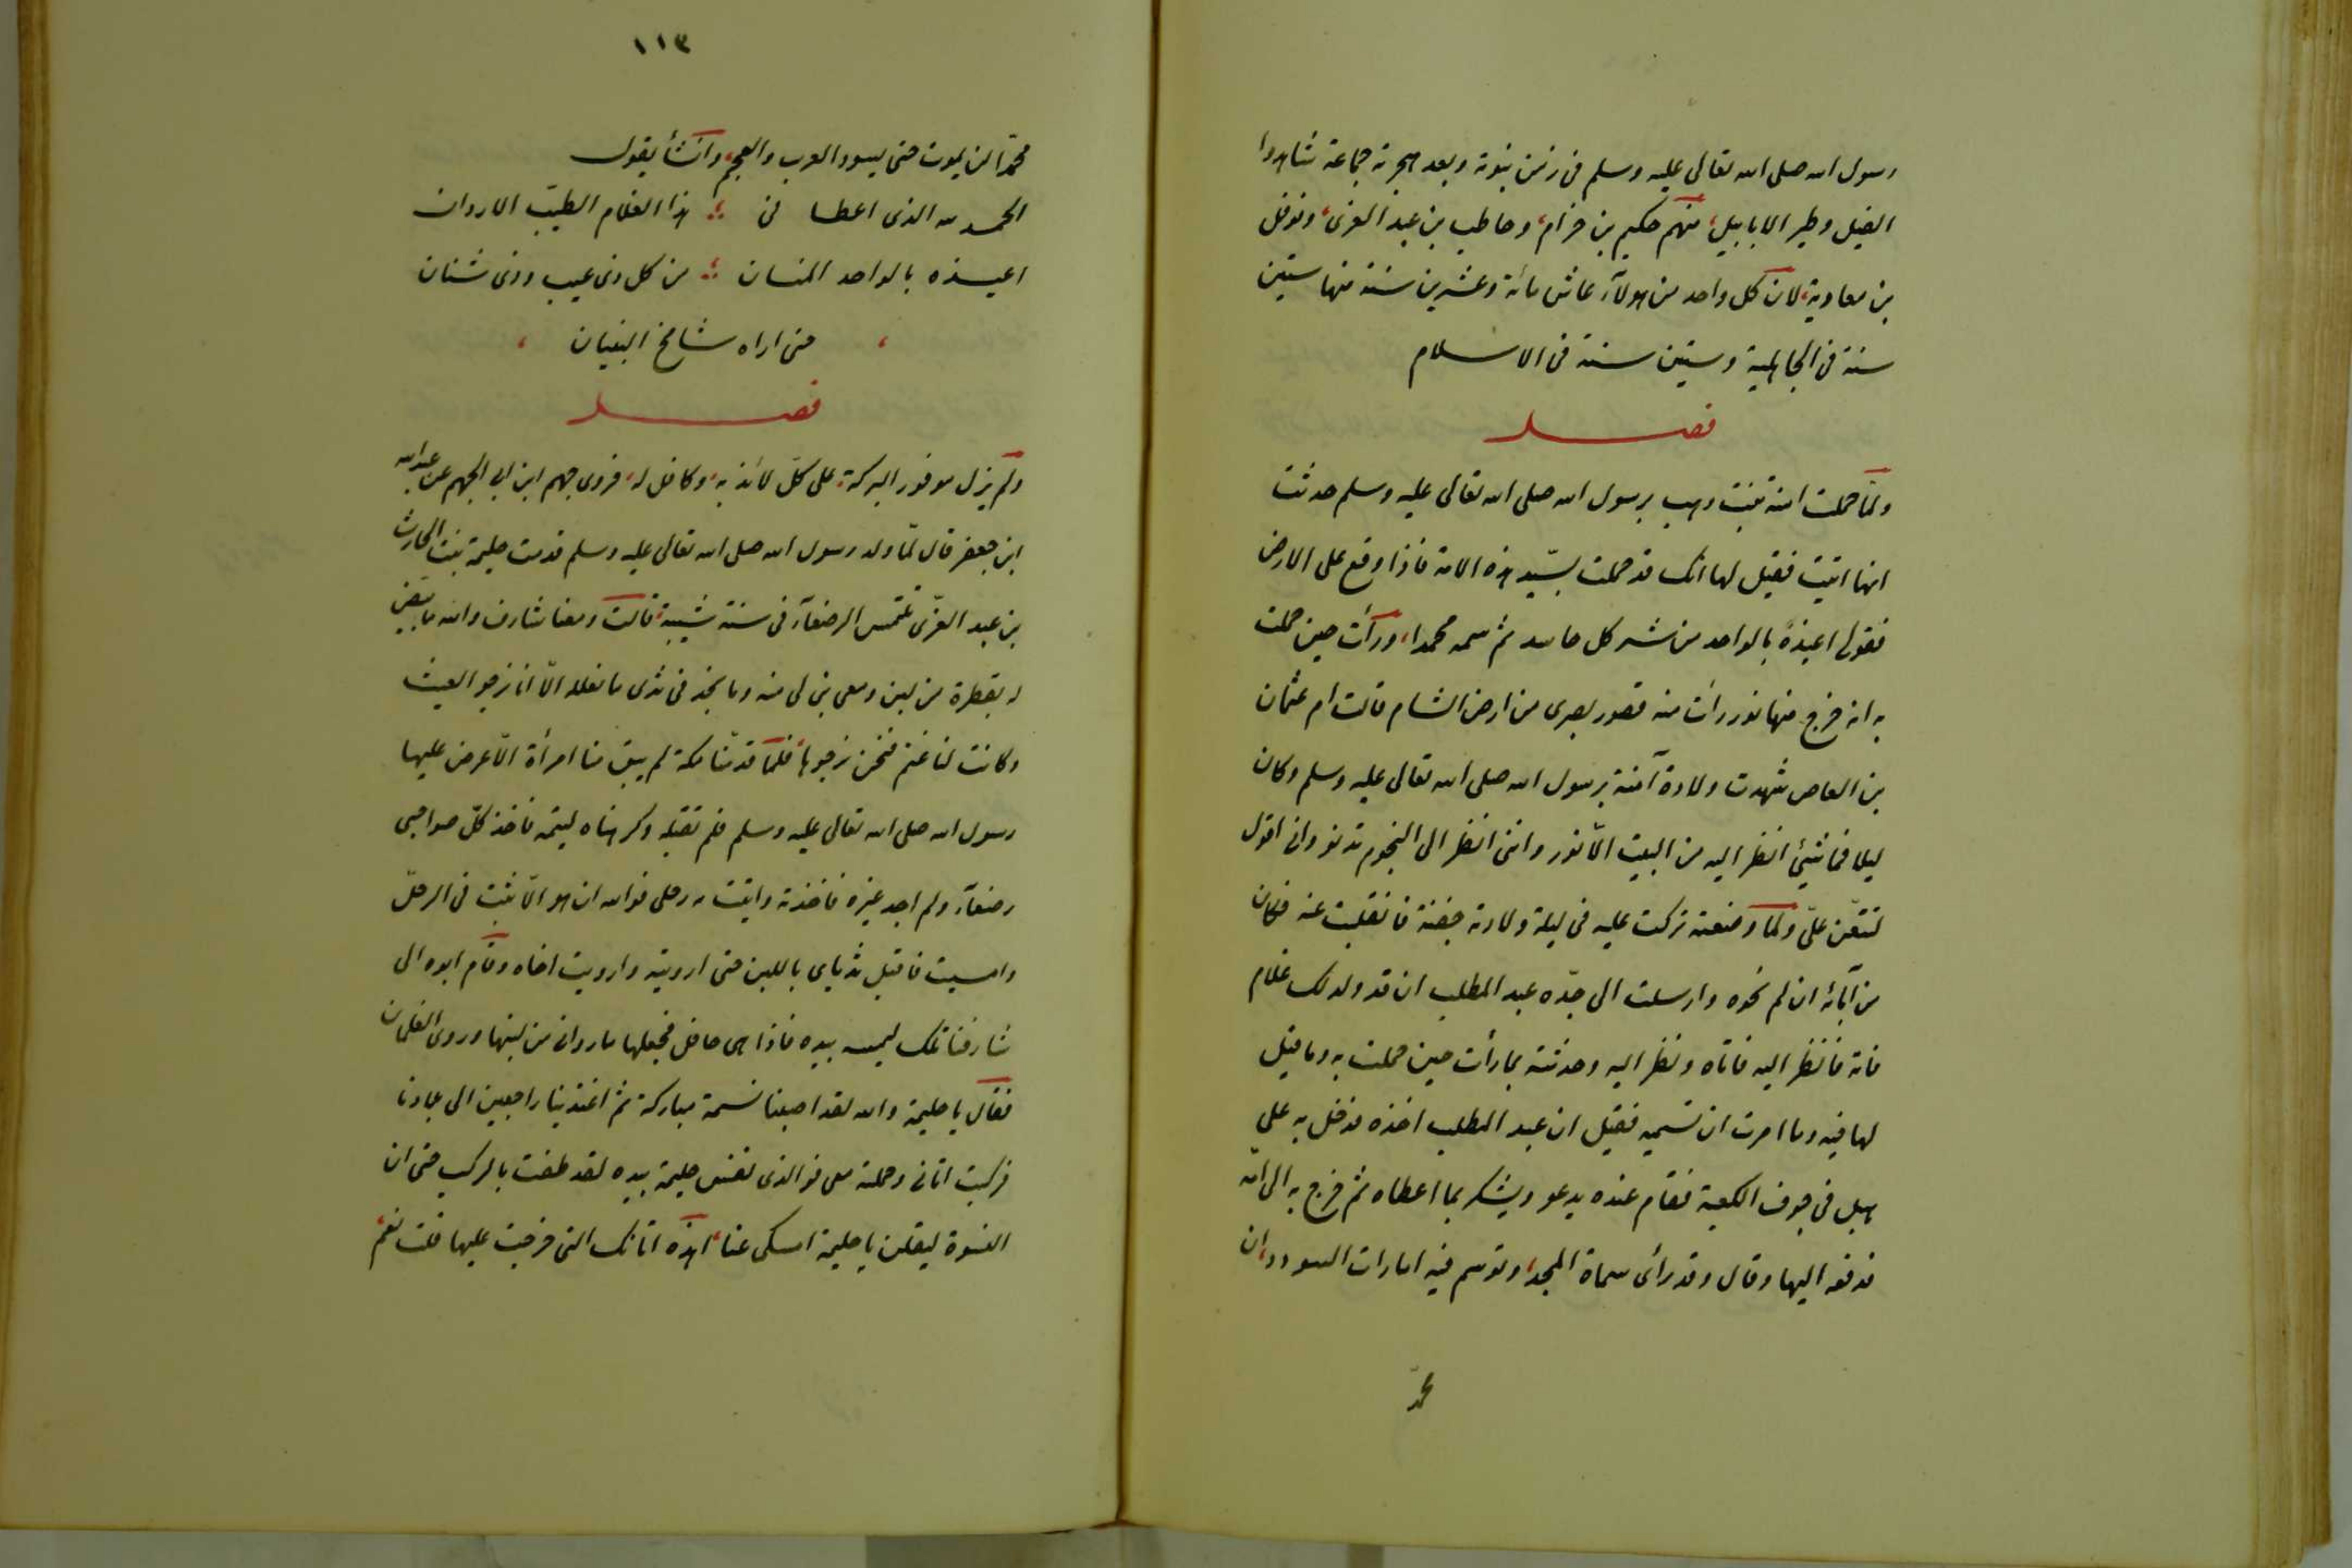 رسول الله صلى الله تعالى عليه وسلم فى زمن نبوته وبعد هجرته جماعة شاهدوا
الفيل وطير الابابيل، منهم حكيم بن حزام، وحاطب بن عبد العزى، ونوفل
بن معاوية، لان كل واحد من هولآء عاش مائة وعشرين سنة منها ستين
سنة فى الجاهلية وستين سنة فى الاسلام
فصل
ولمّا حملت امنة بنت وهب برسول الله صلى الله تعالى عليه وسلم حدثت
انها اتيت فقيل لها انك قد حملت بسيّد هذه الامة فاذا وقع على الارض
فقولى اعيذه بالواحد من شر كل حاسد ثم سمه محمدا، ورأت حين حملت
به انه خرج منها نور رأت منه قصور بصرى من ارض الشام قالت ام عثمان
بن العاص شهدت ولادة آمنة برسول الله صلى الله تعالى عليه وسلم وكان
ليلا فما شيئ انظر اليه من البيت الّا نور وانى انظر الى النجوم تدنو وانى اقول
لتقعنّ علىّ ولما وضعته تركت عليه فى ليلة ولادته جفنة فانقلبت عنه فكان
من آياته ان لم تحوه وارسلت الى جدّه عبد المطلب ان قد ولد لك غلام
فاته فانظر اليه فاتاه ونظر اليه وحدثته بما رأت حين حملت به وما قيل
لها فيه وما امرت ان تسميه فقيل ان عبد المطلب اخذه فدخل به على
هبل فى جوف الكعبة فقام عنده يدعو ويشكر بما اعطاه ثم خرج به الى امّه
فدفعه اليها وقال وقد رأى سماة المجد، وتوسم فيه امارات السودد، ان
محمّد
١١٣
محمّدا لن يموت حتى يسود العرب والعجم، وانشأ يقول
الحمد لله الذى اعطانى ؛ هذا الغلام الطيّب الاردان
اعيذه بالواحد المنان ؛ من كل ذى عيب وذى شنان
، حتى اراه شامخ البنيان ،
فصل
ولم يزل موفور البركة، على كلّ لائذ به، وكافل له، فروى جهم ابن ابى الجهم عن عبد الله
ابن جعفر قال لمّا ولد رسول الله صلى الله تعالى عليه وسلم قدمت حليمة بنت الحارث
بن عبد العزّى تلتمس الرضعآء فى سنة شيبة، قالت ومعنا شارف والله ما تبض
له بقطرة من لبن ومعى بنى لى منه وما نجد فى ثدى ما نعلله الّا انا نرجو الغيث
وكانت لنا غنم فنحن نرجوها، فلمّا قدمنا مكة لم يبق منا امرأة الّا عرض عليها
رسول الله صلى الله تعالى عليه وسلم فلم تقبله وكرهناه ليتمه فاخذ كلّ صواحبى
رضعآء ولم اجد غيره فاخذته واتيت به رحلى فوالله ان هو الّا بت فى الرحل
وامسيت فاقبل ثدياى باللبن حتى ارويته وارويت اخاه وقام ابوه الى
شارفنا تلك ليمسه بيده فاذا هى حافل فحلبها ما روانى من لبنها وروى الغلمان
فقال يا حليمة والله لقد اصبنا نسمة مباركة ثم اغتدينا راجعين الى بلادنا
فركبت اتانى وحملته معى فوالذى نفس حليمة بيده لقد طفت بالركب حتى ان
النسوة ليقلن يا حليمة امسكى عنا، اهذه اتانك التى خرجت عليها قلت نعم،